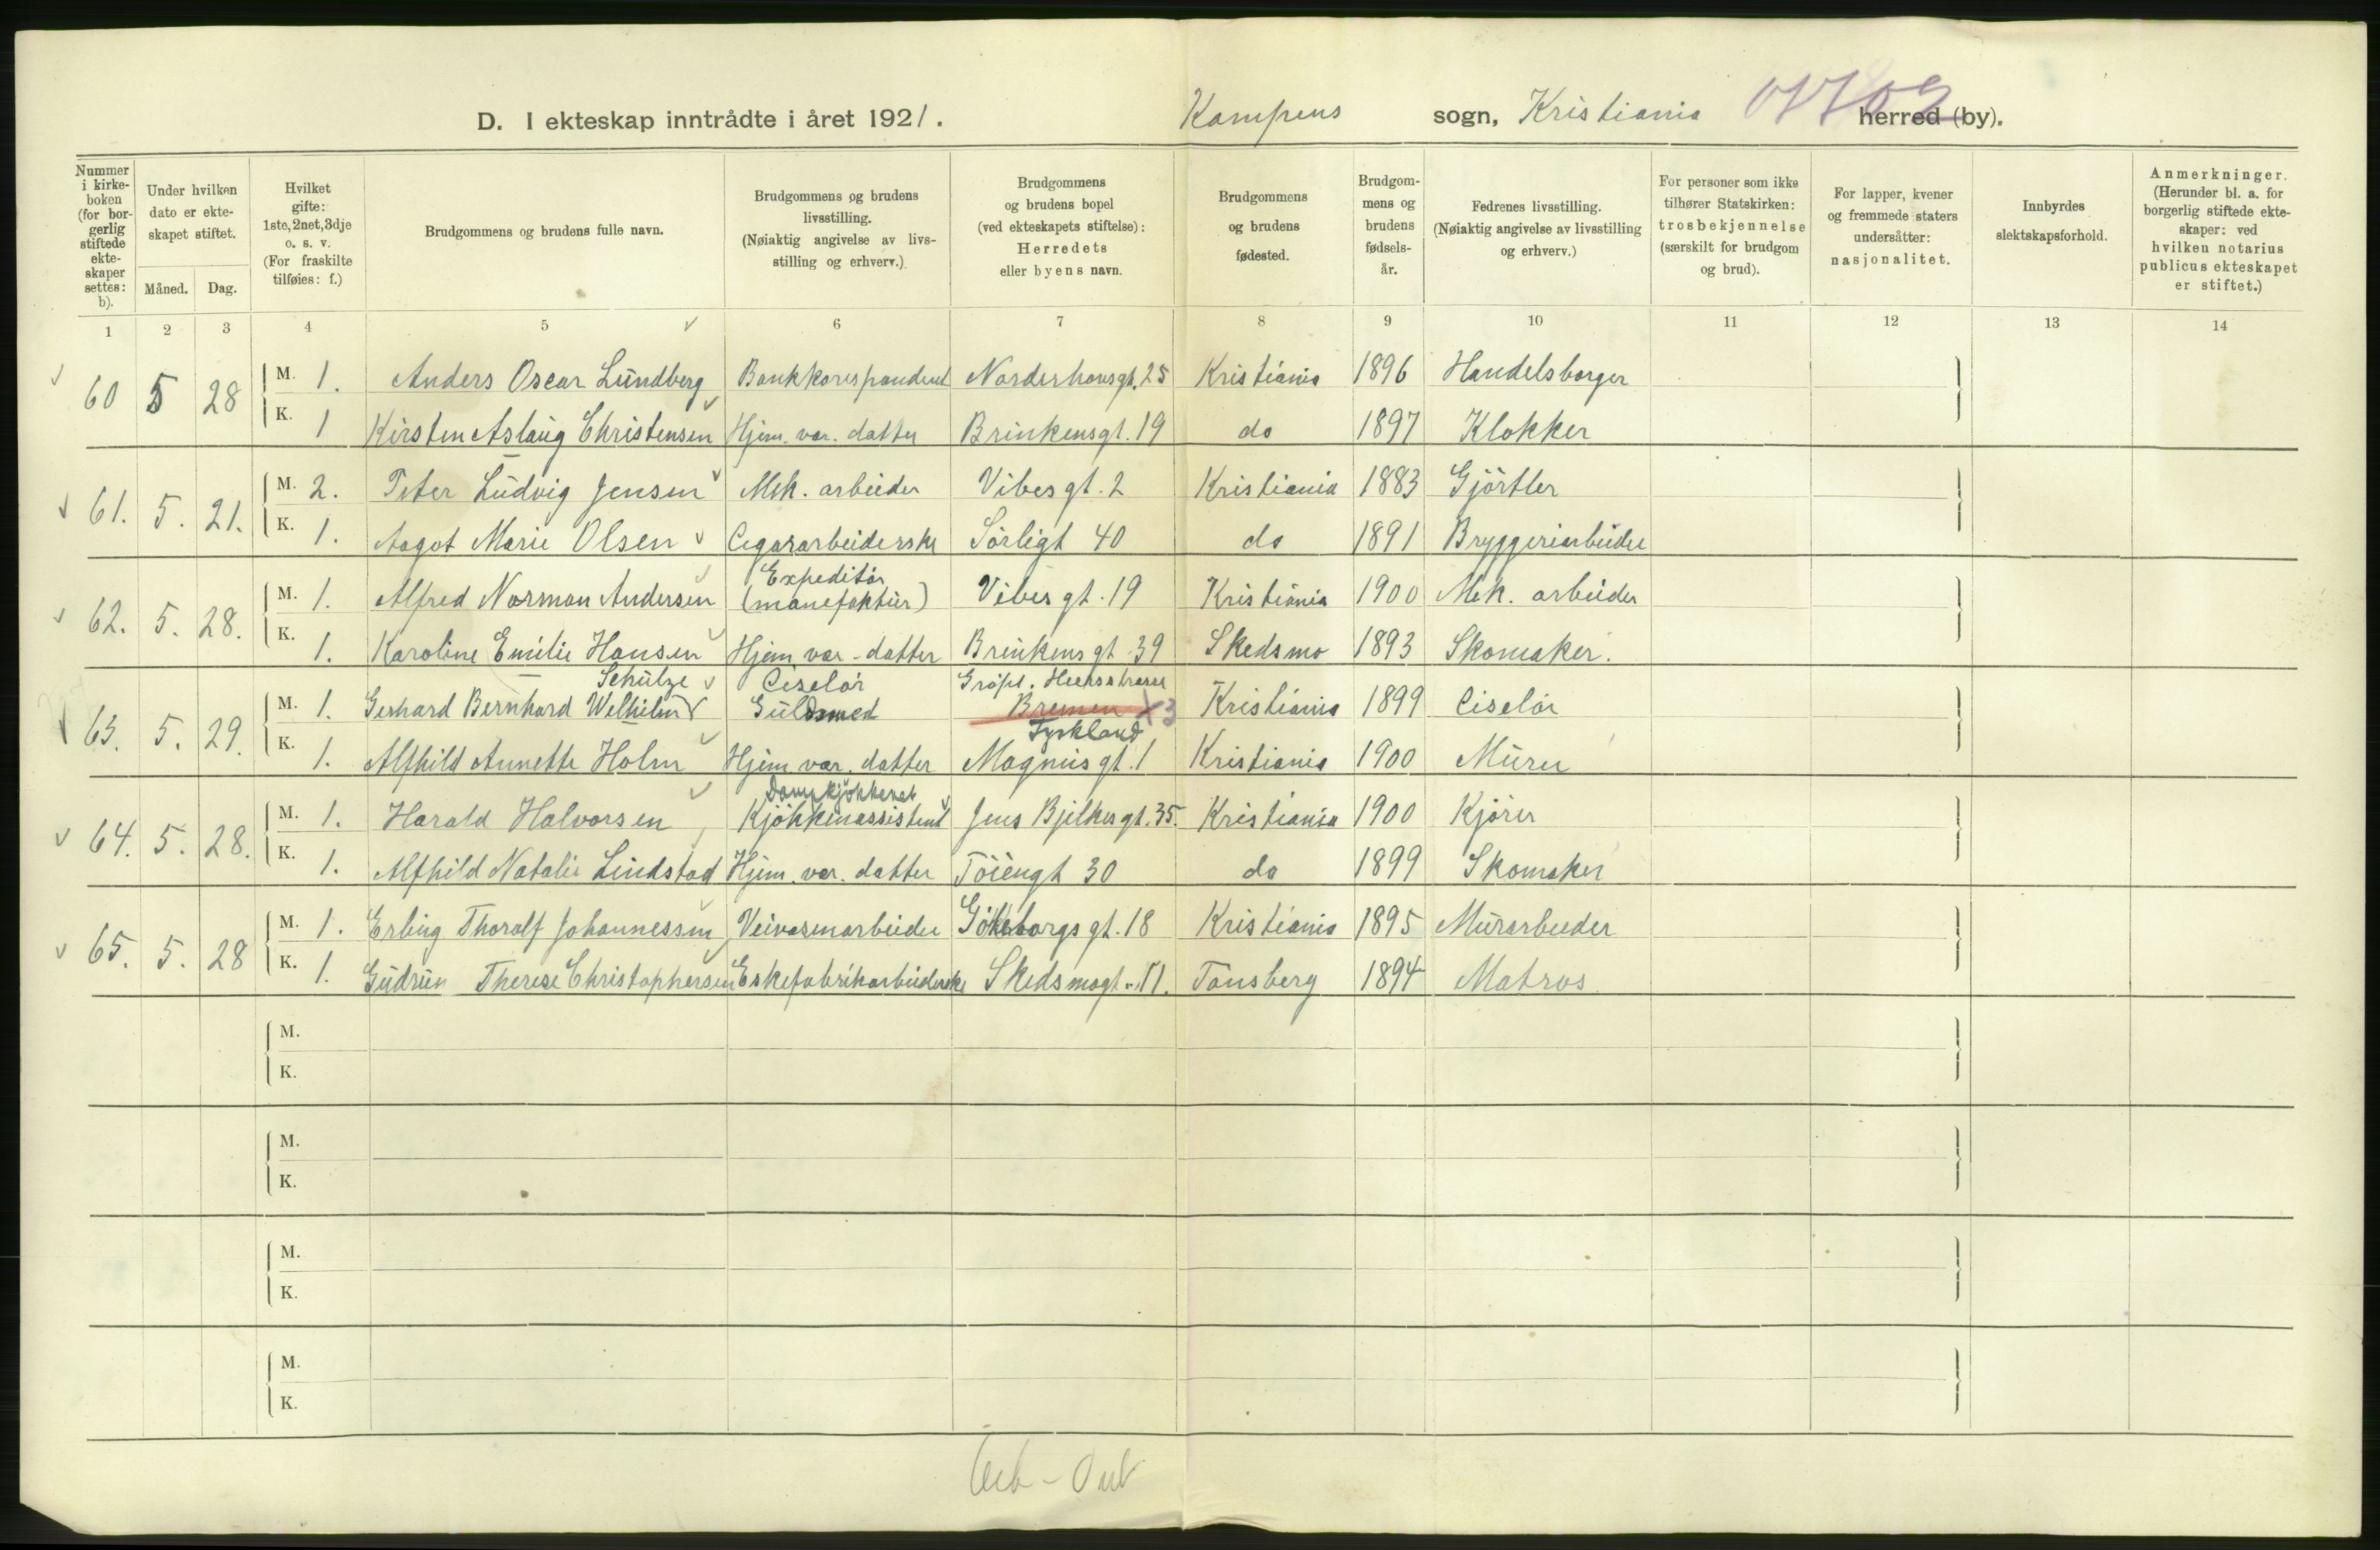 D. I ekteskap inntrådte i året 1921. Kampens sogn, Kristiania herred (by).
Nummer i kirke-boken (for bor-gerlig stiftede ekte-skaper settes: b).
Under hvilken dato er ekte-skapet stiftet.
Måned. Dag.
Hvilket gifte: 1ste, 2net, 3dje o. s. v. (For fraskilte tilføies: f.)
Brudgommens og brudens fulle navn.
Brudgommens og brudens livsstilling. (Nøiaktig angivelse av livs-stilling og erhverv.)
Brudgommens og brudens bopel (ved ekteskapets stiftelse): Herredets eller byens navn.
Brudgommens og brudens fødested.
Brudgom-mens og brudens fødsels-år.
Fedrenes livsstilling. (Nøiaktig angivelse av livsstilling og erhverv.)
For personer som ikke tilhører Statskirken: trosbekjennelse (særskilt for brudgom og brud).
For lapper, kvener og fremmede staters undersåtter: nasjonalitet.
Innbyrdes slektskapsforhold.
Anmerkninger. (Herunder bl. a. for borgerlig stiftede ekte-skaper: ved hvilken notarius publicus ekteskapet er stiftet.)
1 2 3 4 5 6 7 8 9 10 11 12 13 14
60 5 28 M. 1. Anders Oscar Lundberg Bankkorespondent Norderhovsgt. 25 Kristiania 1896 Handelsborger
K. 1 Kirsten Aslaug Christensen Hjem. vær. datter Brinkensgt. 19 do 1897 Klokker
61. 5. 21. M. 2. Peter Ludvig Jensen Mek. arbeider Vibes gt. 2 Kristiania 1883 Gjörtler
K. 1. Aagot Marie Olsen Cigararbeiderske Sörligt 40 do 1891 Bryggeriarbeider
Expeditör
62. 5. 28. M. 1. Alfred Norman Andersen (manefaktur) Vibes gt. 19 Kristiania 1900 Mek. arbeider
K. 1. Karoline Emilie Hansen Hjem vær. datter Brinkens gt. 39 Skedsmo 1893 Skomaker.
Schulze Ciselör Gröpl.
63. 5. 29. M. 1. Gerhard Bernhard Welhilm Guldsmed Bremen x3 Kristiania 1899 Ciselör
Tyskland
K. 1. Alfhild Annette Holm Hjem vær. datter Magnus gt. 1 Kristiania 1900 Murer
Dampkjøkkenet
64. 5. 28. M. 1. Harald Halvorsen Kjökkenassistent Jens Bjelkes gt. 35. Kristiania 1900 Kjörer
K. 1. Alfhild Natalie Lindstad Hjem. vær. datter Töiengt 30 do 1899 Skomaker
65. 5. 28 M. 1. Erling Thoralf Johannessen Veivæsenarbeider Göteborgs gt. 18 Kristiania 1895 Murarbeider
K. 1. Gudrun Therese Christophersen Eskefabrikarbeiderske Skedsmogt. 11. Tönsberg 1894 Matros
M.
K.
M.
K.
M.
K.
M.
K.